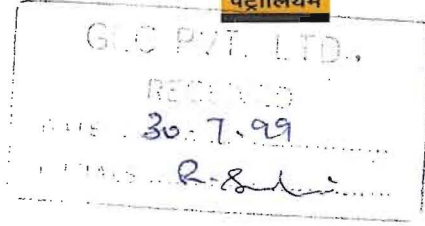 पेट्रोलियम
PVT. LTD.,
RECEIVED
DATE 30.7.99
INITIALS